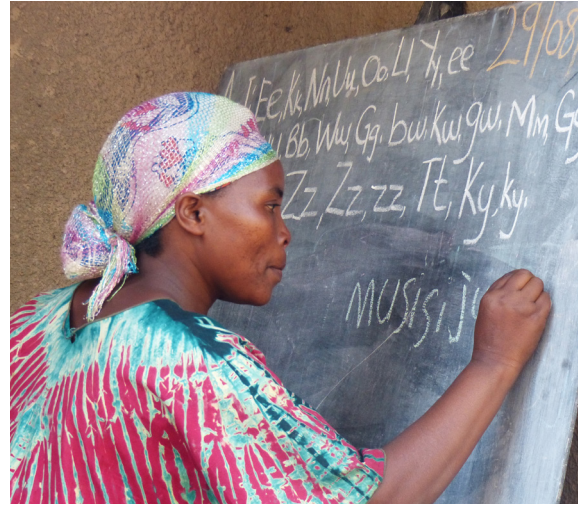 Ee, Kk, Nn, Uu, Oo, Ll, Yy, ee 29/08
Bb, Ww, Gg, bw, Kw, gw, Mm,
Zz, Zz, zz, Tt, Ky, ky.
MUSiSi